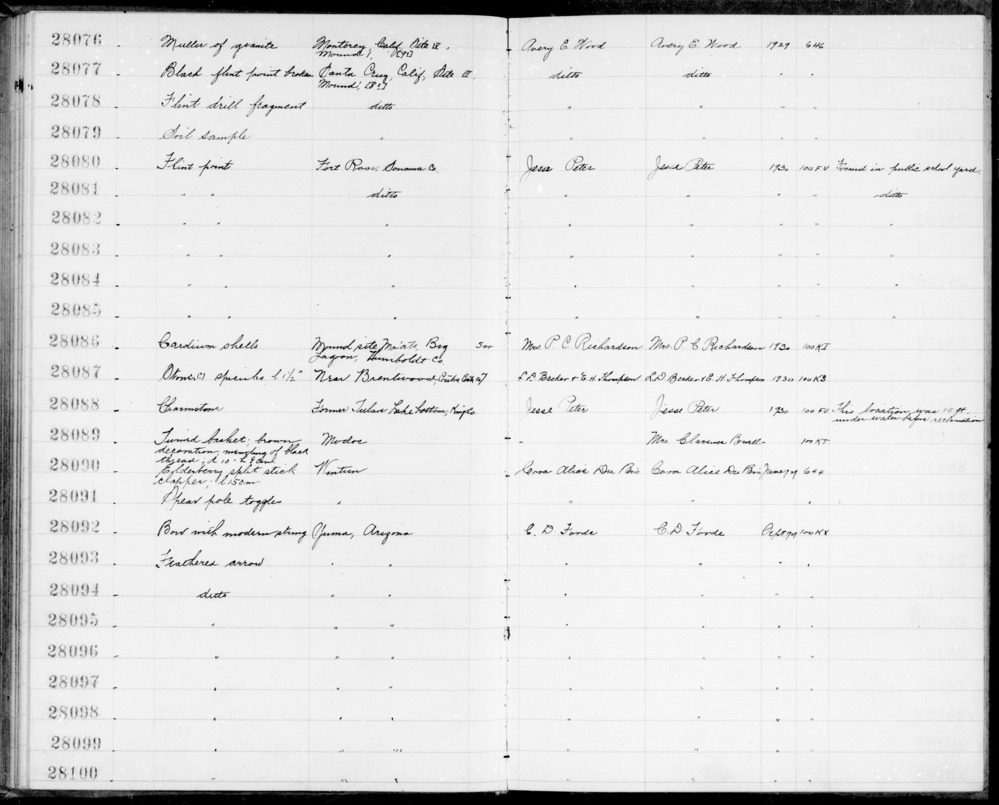 28076 Muller of granite Monterey, Calif, Site IV, Avery E. Wood Avery E. Wood 1929 646
Mound 1,
28077 Black flint point broken Santa Cruz, Calif, Site II, ditto ditto " "
Mound 1,
28078 Flint drill fragment ditto " " " "
28079 Soil sample " " " " "
28080 Flint point Fort Ross, Sonoma Co, Jesse Peter Jesse Peter 1930 100 FV Found in public school yard
28081 " " ditto " " " " ditto
28082 " " " " " " " "
28083 " " " " " " " "
28084 " " " " " " " "
28085 " " " " " " " "
28086 Cardium shells Mound, site Big 50+ Mrs. P C Richardson Mrs. P C Richardson 1930 100KI
Lagoon, Humboldt Co
28087 l 1½" Near Brentwood, E H Thompson E. H. Thompson 1930 100KB
28088 Charmstone Former Tulare Lake bottom, Kings Co Jesse Peter Jesse Peter 1930 100 FV This location was 10 ft.
under water before reclamation
28089 Twined basket; brown Modoc " Mrs. Clarence 100KT
decoration, mingling of black
thread; d 10
28090 Elderberry split stick Wintun Cora Alice Du Bois Cora Alice Du Bois
clapper; l 15cm
28091 Spear pole toggles " " " " "
28092 Bow with modern string Yuma, Arizona C. D. Forde C. D. Forde 100KX
28093 Feathered arrow " " " " " "
28094 ditto " " " " " "
28095 " " " " " " "
28096 " " " " " " "
28097 " " " " " " "
28098 " " " " " " "
28099 " " " " " " "
28100 " " " " " " "